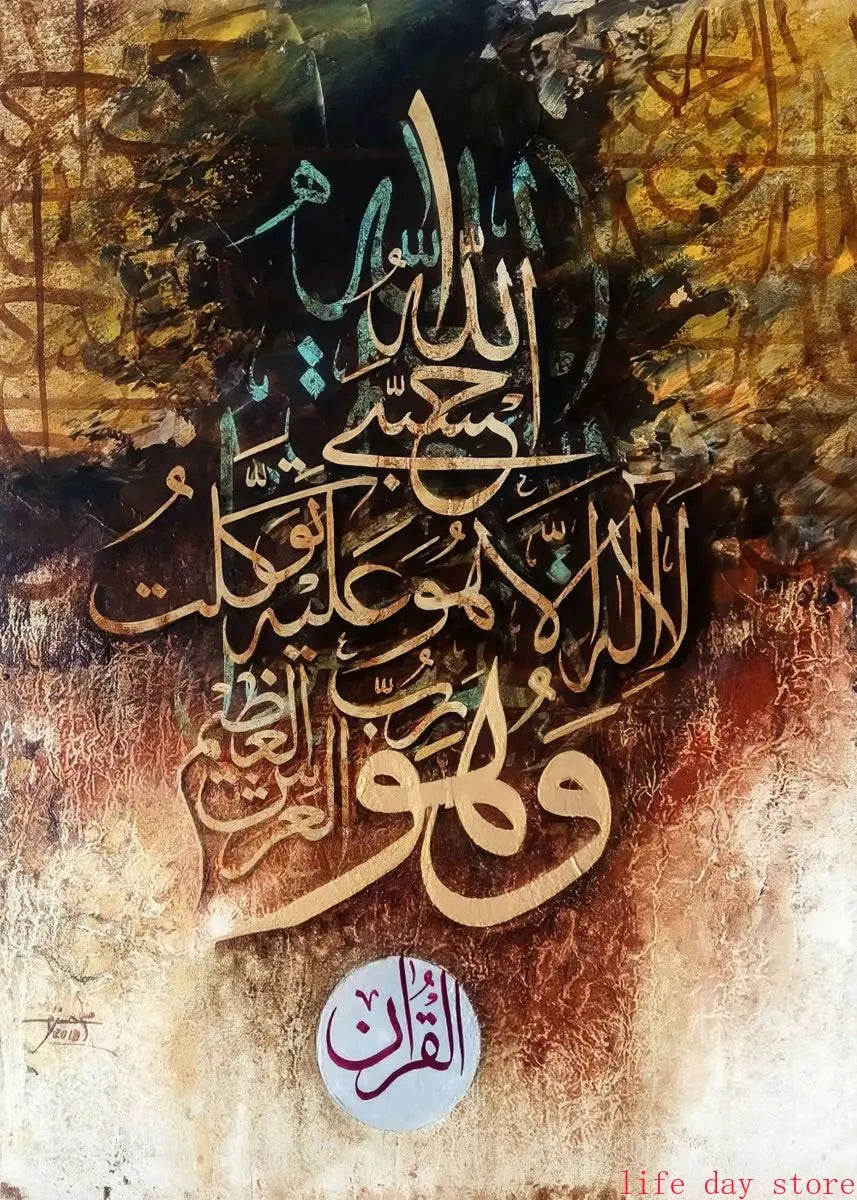 حَسْبِيَ اللّٰهُ
لَا إِلٰهَ إِلَّا هُوَ عَلَيْهِ تَوَكَّلْتُ
وَهُوَ رَبُّ الْعَرْشِ الْعَظِيمِ
القُرآن
2013
life day store